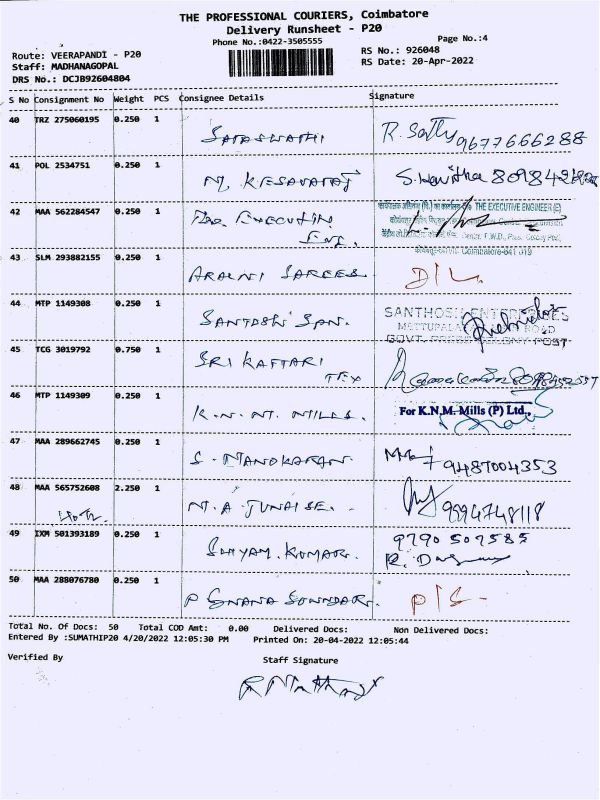 THE PROFESSIONAL COURIERS, Coimbatore
Delivery Runsheet - P20
Phone No.:0422-3505555
Page No.:4
Route: VEERAPANDI - P20
RS No.: 926048
Staff: MADHANAGOPAL
RS Date: 20-Apr-2022
DRS No.: DCJB92604804
S No Consignment No Weight PCS Consignee Details Signature
40 TRZ 275060195 0.250 1
SARASWATHI R. Sathy 9677666288
41 POL 2534751 0.250 1
M. KESAVARAJ
42 MAA 562284547 0.250 1
THE EXECUTIVE ENGINEER (E)
The EXECUTIVE
Eng.
43 SLM 293882155 0.250 1
ARALNI SAREES D/L
44 MTP 1149308 0.250 1
SANTOSH SAN. SANTHOSH ENTERPRISES
GOVT. PRESS COLONY POST
45 TCG 3019792 0.750 1
SRI KATTARI
TEX
46 MTP 1149309 0.250 1
K.N.M. MILLS. For K.N.M. Mills (P) Ltd.,
47 MAA 289662745 0.250 1
S. MANOKARAN 9487004353
48 MAA 565752608 2.250 1
M.A JUNAISE. 9994748118
49 IXM 501393189 0.250 1
9790 507585
SHYAM. KUMAR.
50 MAA 288076780 0.250 1
P GNANA SOUNDARI. P/S-
Total No. Of Docs: 50 Total COD Amt: 0.00 Delivered Docs: Non Delivered Docs:
Entered By :SUMATHIP20 4/20/2022 12:05:30 PM Printed On: 20-04-2022 12:05:44
Verified By Staff Signature